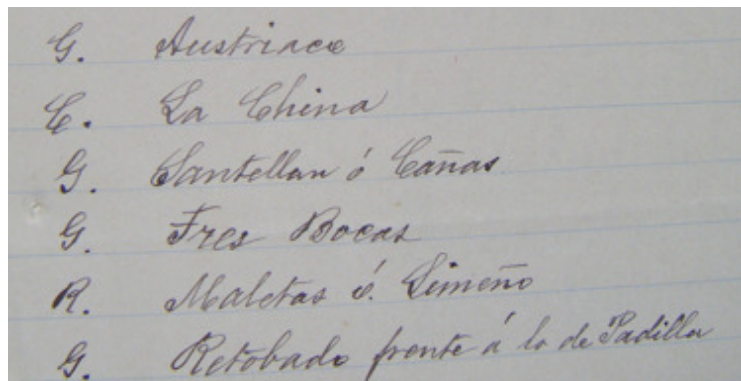 G. Austriaco
C. La China
G. Santellan ó Cañas
G. Tres Bocas
R. Maletas ó. Limeño
G. Retobado frente á lo de Padilla